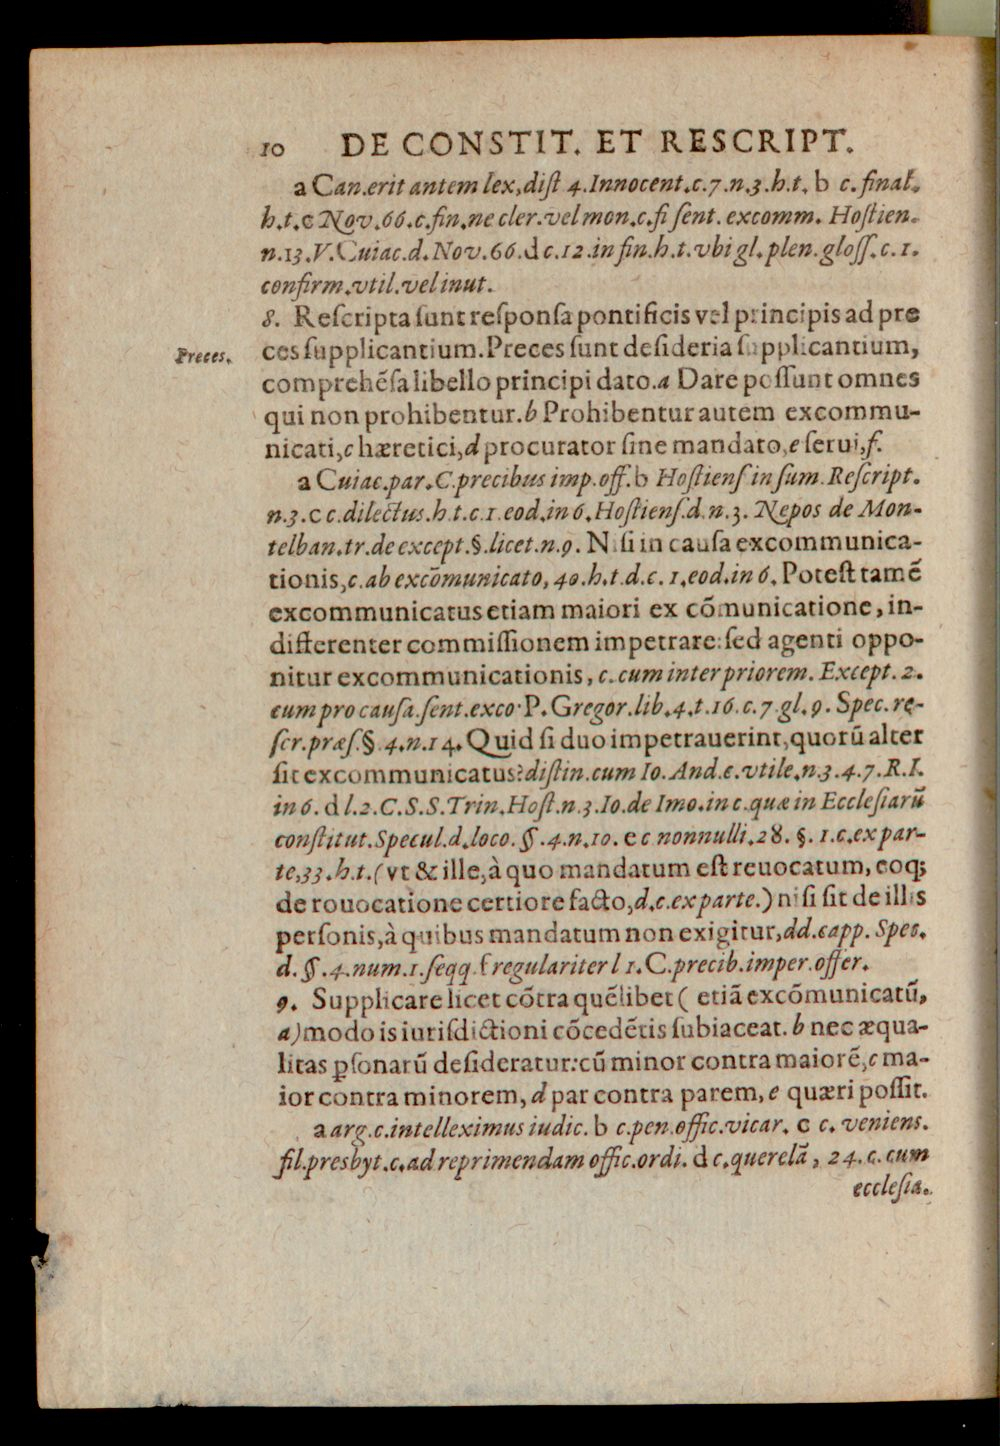 10 DE CONSTIT. ET RESCRIPT.
a Can.erit antem lex,diſt 4.Innocent.c.7.n.3.h.t. b c.final.
h.t.c Nov.66.c.fin.ne cler.vel mon.c.ſi ſent. excomm. Hoſtien.
n.13.V.Cuiac.d.Nov.66.d c.12.in fin.h.t.vbi gl.plen.gloſſ.c.1.
confirm.vtil.vel inut.
8. Reſcripta ſunt reſponſa pontificis vel principis ad pre
Preces. ces ſupplicantium.Preces ſunt deſideria ſupplicantium,
comprehẽſa libello principi dato.a Dare poſſunt omnes
qui non prohibentur.b Prohibentur autem excommu-
nicati,c hæretici,d procurator ſine mandato,e ſerui,f.
a Cuiac.par.C.precibus imp.off.b Hoſtienſ in ſum.Reſcript.
n.3.c c.dilectus.h.t.c.1.eod.in 6.Hoſtienſ.d.n.3. Nepos de Mon-
telban.tr.de except.§.licet.n.9. Niſi in cauſa excommunica-
tionis,c.ab excõmunicato, 40.h.t.d.c. 1.eod.in 6. Poteſt tamẽ
excommunicatus etiam maiori ex cõmunicatione, in-
differenter commiſſionem impetrare: ſed agenti oppo-
nitur excommunicationis, c.cum inter priorem. Except. 2.
cum pro cauſa.ſent.exco. P.Gregor.lib.4.t.16.c.7.gl.9. Spec.re-
ſcr.præſ.§.4.n.14. Quid ſi duo impetrauerint,quorũ alter
ſit excommunicatus?diſtin.cum Io.And.c.vtile.n.3.4.7.R.I.
in 6. d l.2.C.S.S.Trin.Hoſt.n.3.Io.de Imo.in c.quæ in Eccleſiarũ
conſtitut.Specul.d.loco. §.4.n.10. e c nonnulli.28. §. 1.c.ex par-
te,33.h.t.(vt & ille,à quo mandatum eſt reuocatum, eoq;
de rouocatione certiore facto,d.c.ex parte.) niſi ſit de illis
perſonis,à quibus mandatum non exigitur,dd.capp. Spec.
d. §.4.num.1.ſeqq.f regulariter l 1.C.precib.imper.offer.
9. Supplicare licet cõtra quẽlibet ( etiã excõmunicatũ,
a) modo is iuriſdictioni cõcedẽtis ſubiaceat. b nec æqua-
litas ꝑſonarũ deſideratur:cũ minor contra maiorẽ,c ma-
ior contra minorem, d par contra parem, e quæri poſſit.
a arg.c.intelleximus iudic. b c.pen.offic.vicar. c c. veniens.
fil.presbyt.c.ad reprimendam offic.ordi. d c.querelã, 24.c.cum
eccleſia.